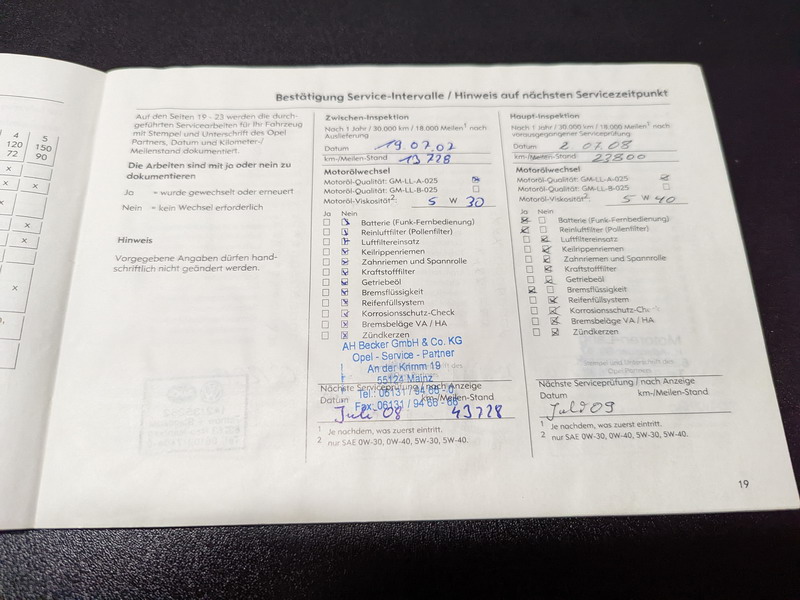 4 5
120 150
72 90
x
x x
x
x
x
Bestätigung Service-Intervalle / Hinweis auf nächsten Servicezeitpunkt
Auf den Seiten 19 - 23 werden die durch-
geführten Servicearbeiten für Ihr Fahrzeug
mit Stempel und Unterschrift des Opel
Partners, Datum und Kilometer-/
Meilenstand dokumentiert.
Die Arbeiten sind mit ja oder nein zu
dokumentieren
Ja = wurde gewechselt oder erneuert
Nein = kein Wechsel erforderlich
Hinweis
Vorgegebene Angaben dürfen hand-
schriftlich nicht geändert werden.
Zwischen-Inspektion
Nach 1 Jahr / 30.000 km / 18.000 Meilen1 nach
Auslieferung
Datum 19.07.07
km-/Meilen-Stand 13728
Motorölwechsel
Motoröl-Qualität: GM-LL-A-025
Motoröl-Qualität: GM-LL-B-025
Motoröl-Viskosität2: 5 W 30
Ja Nein
Batterie (Funk-Fernbedienung)
Reinluftfilter (Pollenfilter)
Luftfiltereinsatz
Keilrippenriemen
Zahnriemen und Spannrolle
Kraftstofffilter
Getriebeöl
Bremsflüssigkeit
Reifenfüllsystem
Korrosionsschutz-Check
Bremsbeläge VA / HA
Zündkerzen
AH Becker GmbH & Co. KG
Opel - Service - Partner
An der Krimm 19
55124 Mainz
Tel.: 06131 / 94 66 - 0
Fax: 06131 / 94 66 - 66
Nächste Serviceprüfung / nach Anzeige
Datum km-/Meilen-Stand
Juli 08 43728
1 Je nachdem, was zuerst eintritt.
2 nur SAE 0W-30, 0W-40, 5W-30, 5W-40.
Haupt-Inspektion
Nach 1 Jahr / 30.000 km / 18.000 Meilen1 nach
vorausgegangener Serviceprüfung
Datum 2.07.08
km-/Meilen-Stand 23800
Motorölwechsel
Motoröl-Qualität: GM-LL-A-025
Motoröl-Qualität: GM-LL-B-025
Motoröl-Viskosität2: 5 W 40
Ja Nein
Batterie (Funk-Fernbedienung)
Reinluftfilter (Pollenfilter)
Luftfiltereinsatz
Keilrippenriemen
Zahnriemen und Spannrolle
Kraftstofffilter
Getriebeöl
Bremsflüssigkeit
Reifenfüllsystem
Korrosionsschutz-Check
Bremsbeläge VA / HA
Zündkerzen
Stempel und Unterschrift des
Opel Partners
Nächste Serviceprüfung / nach Anzeige
Datum km-/Meilen-Stand
Juli 09
1 Je nachdem, was zuerst eintritt.
2 nur SAE 0W-30, 0W-40, 5W-30, 5W-40.
19